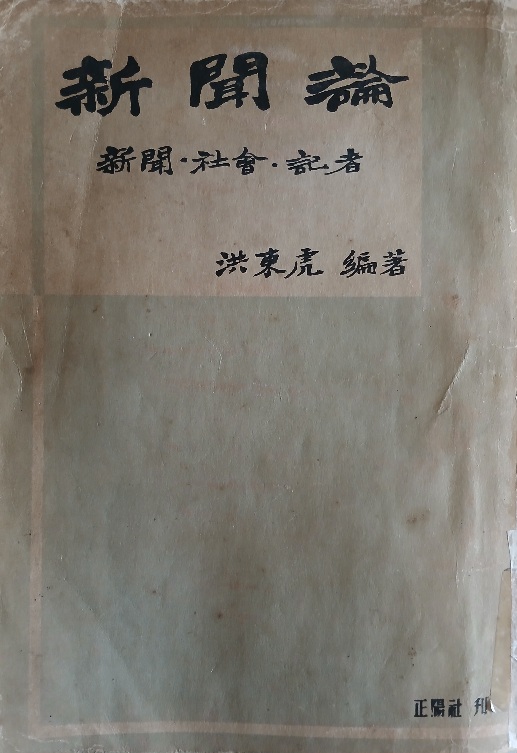 新聞論
新聞·社會·記者
洪東虎 編著
正陽社 刊